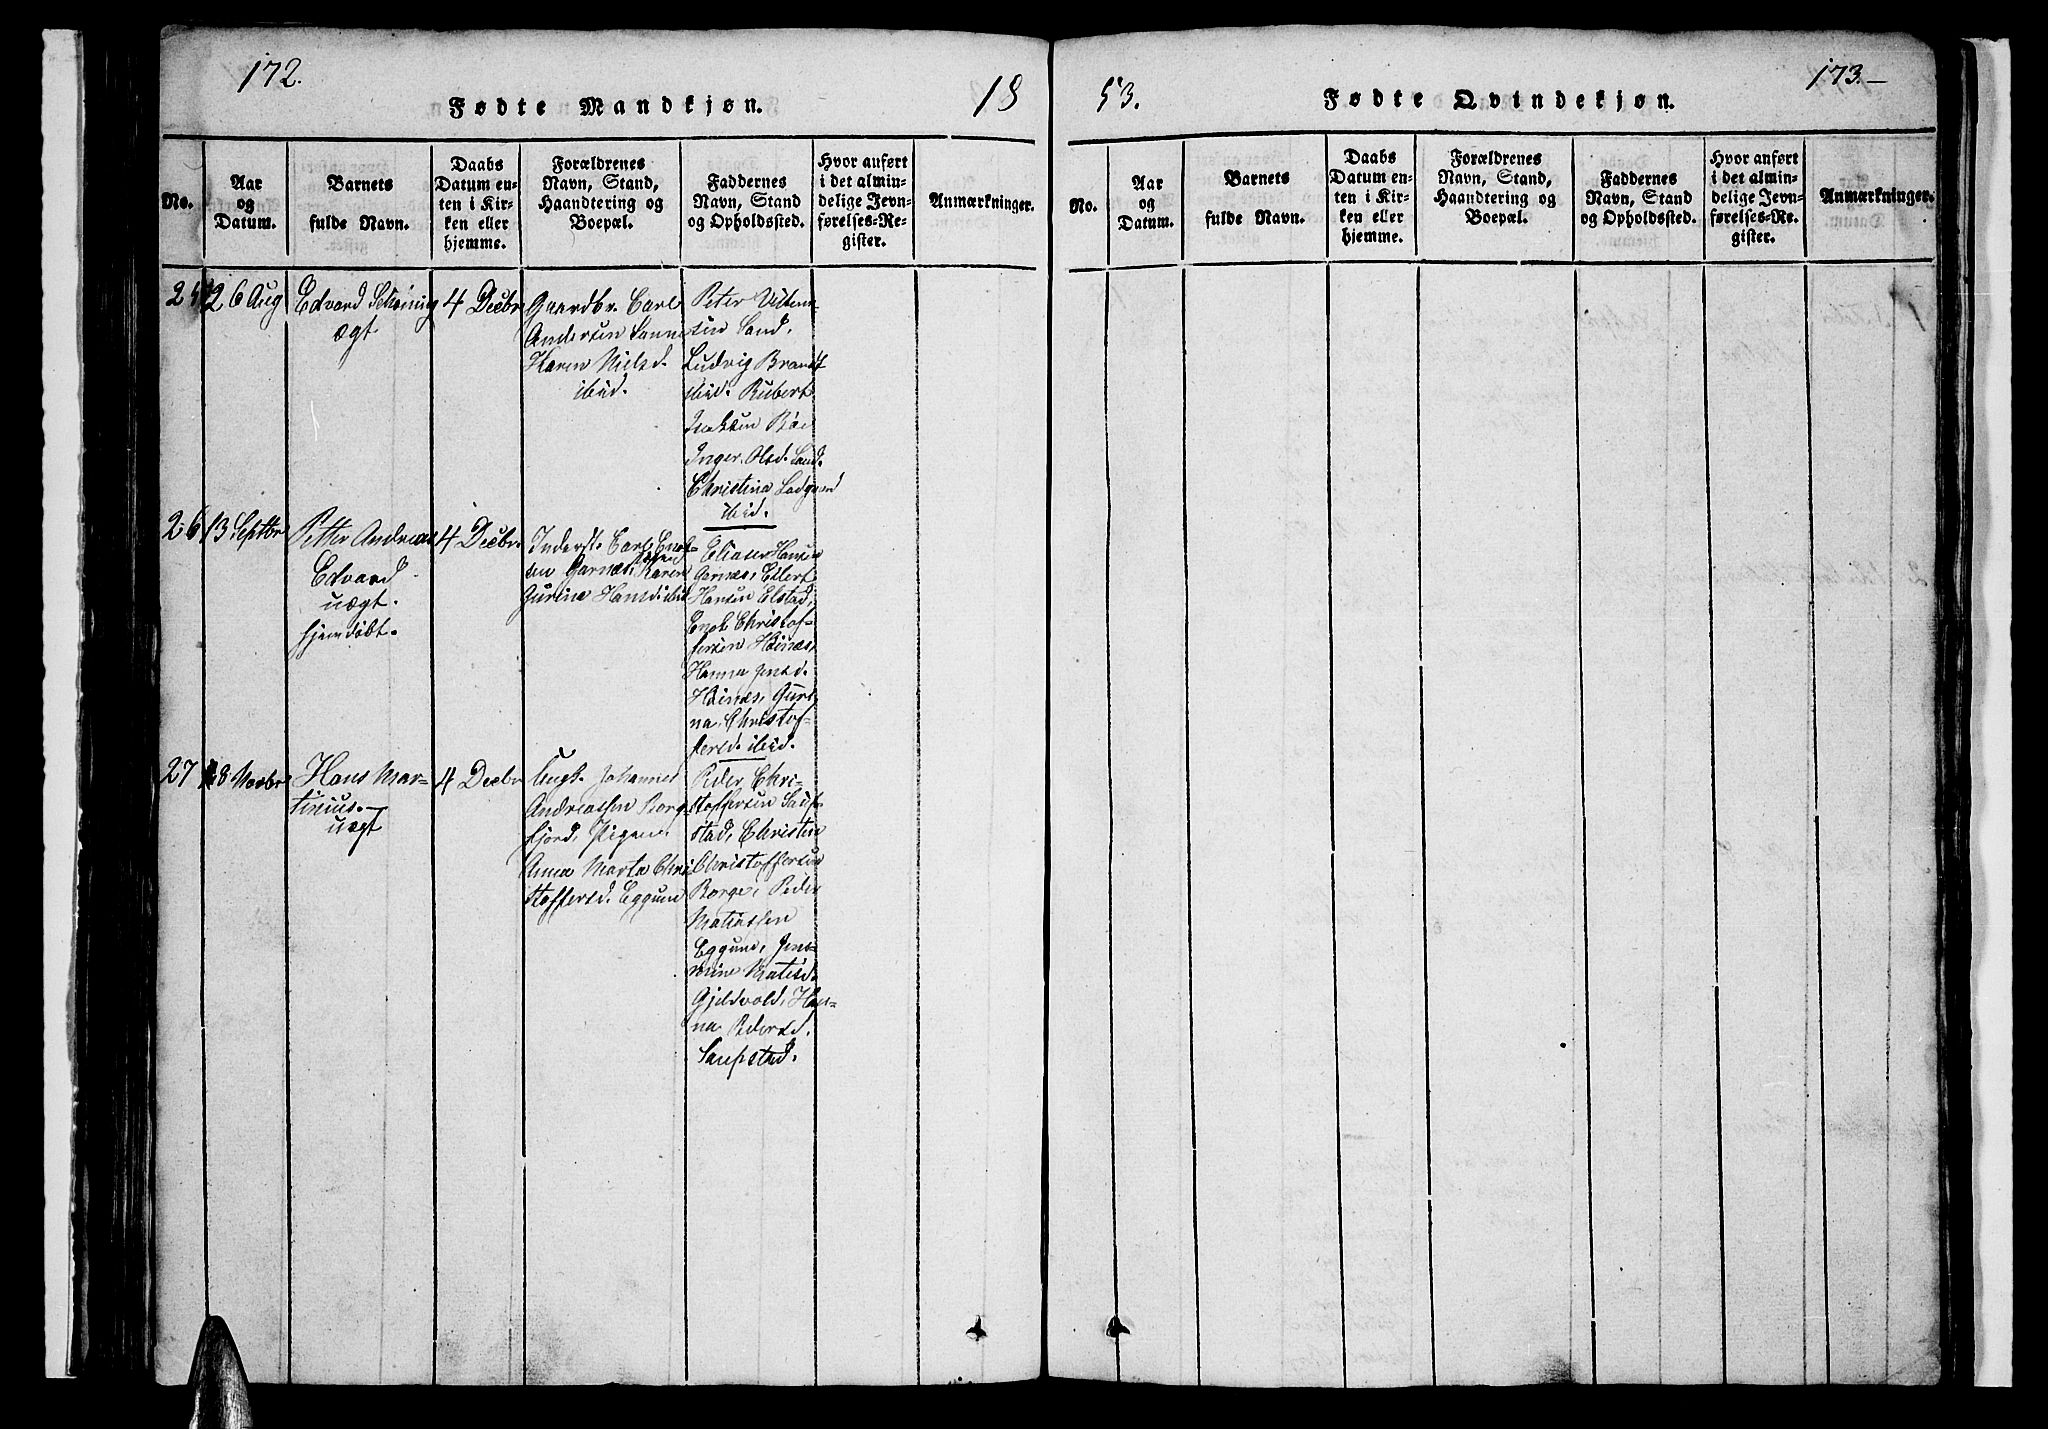 172.
18
Fødte Mandkjøn.
No.
Aar
og
Datum.
Barnets
fulde Navn.
Daabs
Datum en-
ten i Kir-
ken eller
hjemme.
Forældrenes
Navn, Stand,
Haandtering og
Boepæl.
Faddernes
Navn, Stand
og Opholdssted.
Hvor anført
i det almin-
delige Jevn-
førelses-Re-
gister.
Anmærkninger.
25
26 Aug
Edvard Schøning
ægt
4 Decbr
Gaardbr. Carl
Andersen Sanne
Karen Nielsd.
ibid.
Peter
Sand,
Ludvig Brandt
ibid. Rubert
Isaksen Bøe
Inger Olsd. Sand.
Christina Ladgaard
ibid.
26
13 Septbr
Petter Andreas
Edvard
uægt.
hjemdøbt.
4 Decbr.
Inderst. Carl Enok-
sen Garnæs, Karen
Gurine Hansd. ibid
Eliaser Hansen
Garnæs, Eilert
Hansen Elstad,
Enok Christof-
fersen Høinæs,
Hanna Jensd.
Høinæs, Guri-
na Christof-
fersd. ibid.
27
18 Novbr
Hans Mar-
tinius.
uægt
4 Decbr
Ungk. Johannes
Andreassen Borg-
fjord, Pigen
Anna Marta Chri
stoffersd. Eggund
Peder Chri-
stoffersen Saup-
stad, Christen
Christoffersen
Borge, Peder
Matiassen
Eggund, Jens-
mine Matisd.
Gjeldvold, Han-
na Pedersd.
Saupstad.
53.
173.—
Fødte Qvindekjøn.
No.
Aar
og
Datum.
Barnets
fulde Navn.
Daabs
Datum en-
ten i Kir-
ken eller
hjemme.
Forældrenes
Navn, Stand,
Haandtering og
Boepæl.
Faddernes
Navn, Stand
og Opholdssted.
Hvor anført
i det almin-
delige Jevn-
førelses-Re-
gister.
Anmærkninger.